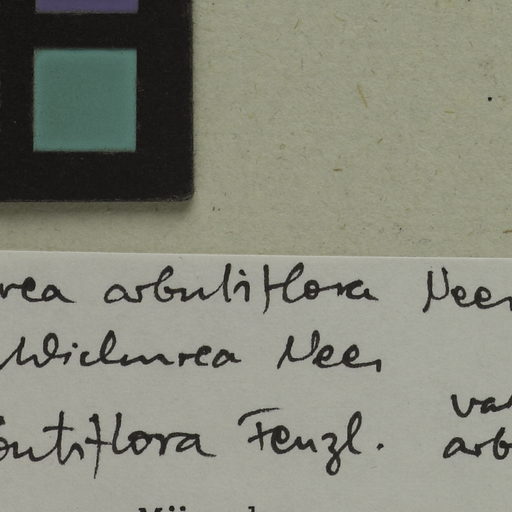 rea arbutiflora Neer
Wichurea Nees
butiflora Fenzl. var
arb